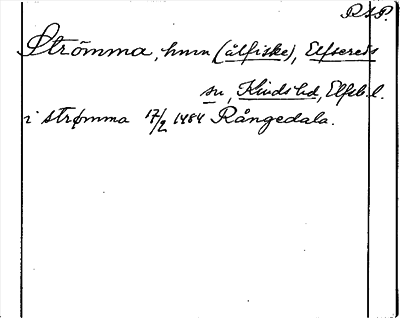 RAP.
Strömma, hmn (ålfiske), Elfsereds
sn, Kinds hd, Elfsb. l.
i strømma 17/2 1484 Rångedala.